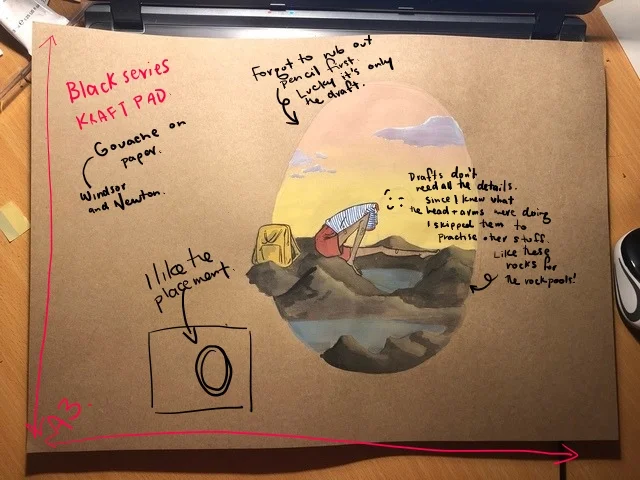 Black series
KRAFT PAD.
Gouache on
paper.
Windsor
and Newton.
Forgot to rub out
pencil first.
Lucky it's only
the draft.
Drafts don't
need all the details.
Since I knew what
the head + arms were doing
I skipped them to
practise other stuff.
Like these
rocks for
the rockpools!
I like the
placement.
A3.